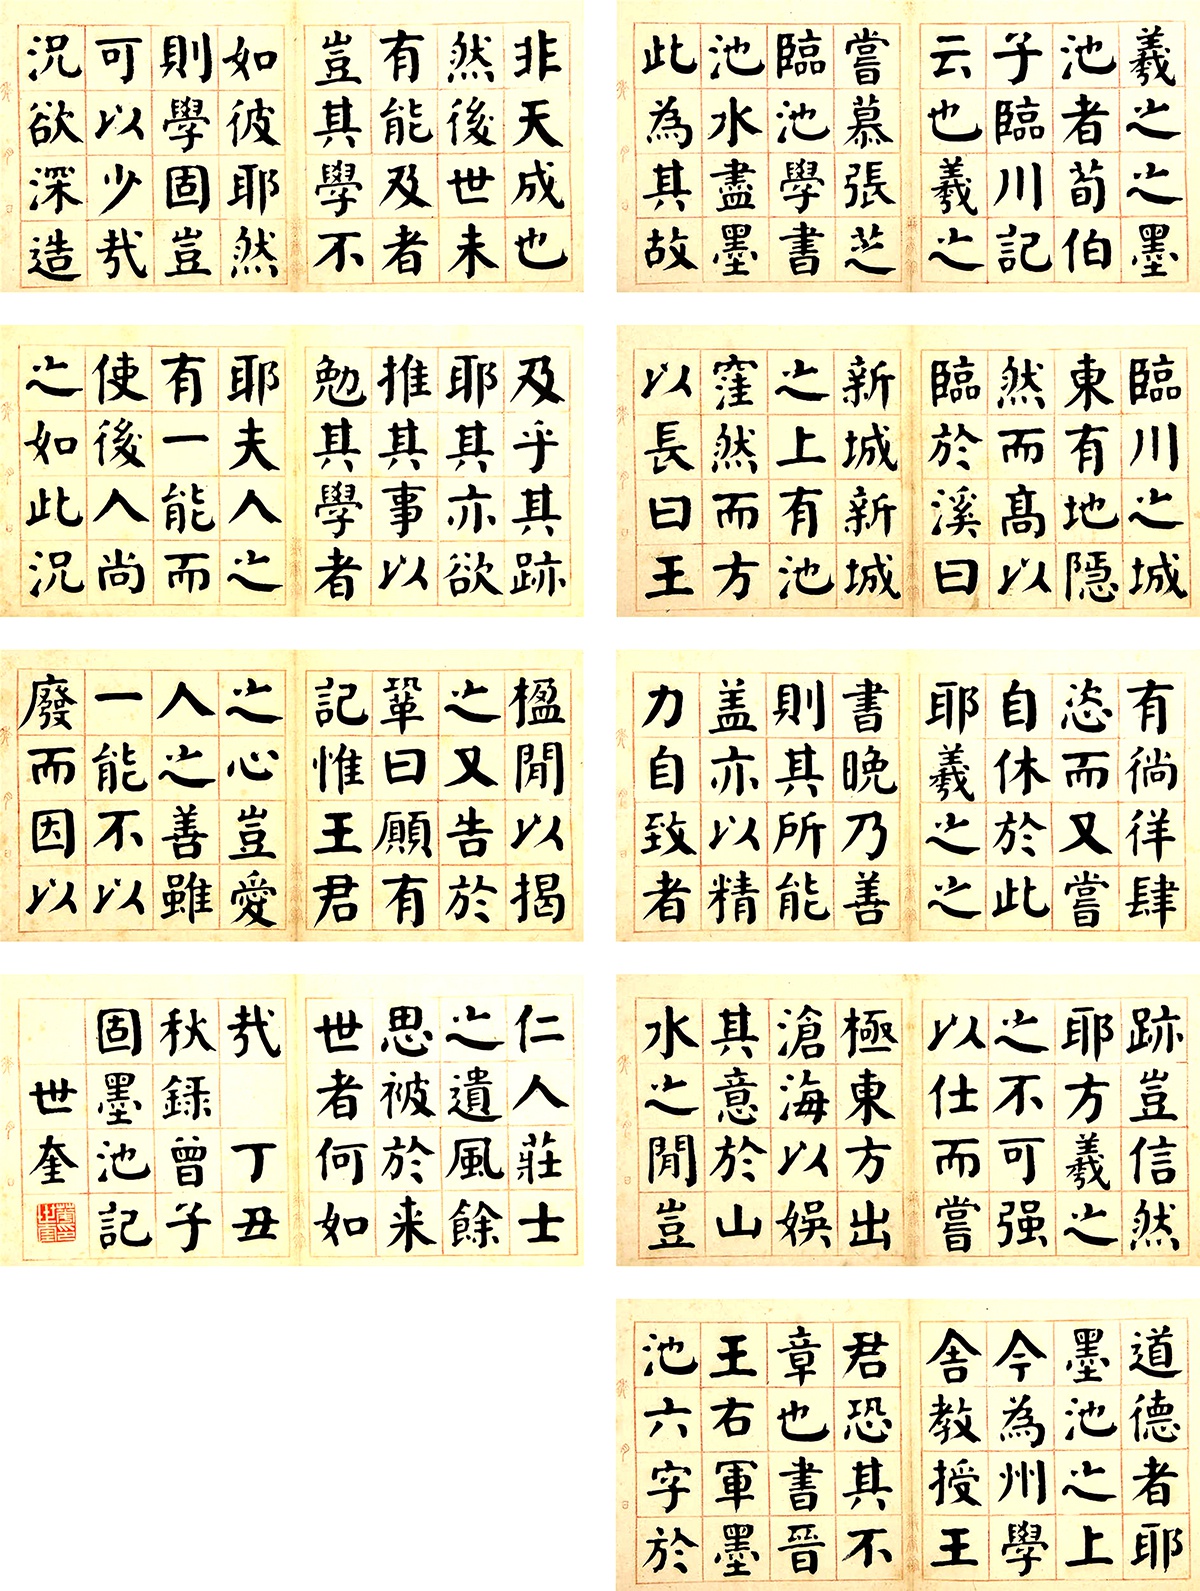 臨川之城
東有地隱
然而高以
臨於溪曰
新城新城
之上有池
窪然而方
以長曰王
羲之之墨
池者荀伯
子臨川記
云也羲之
嘗慕張芝
臨池學書
池水盡墨
此為其故
跡豈信然
耶方羲之
之不可强
以仕而嘗
極東方出
滄海以娛
其意於山
水之閒豈
有徜徉肆
恣而又嘗
自休於此
耶羲之之
書晚乃善
則其所能
盖亦以精
力自致者
非天成也
然後世未
有能及者
豈其學不
如彼耶然
則學固豈
可以少哉
況欲深造
道德者耶
墨池之上
今為州學
舍教授王
君恐其不
章也書晉
王右軍墨
池六字於
楹閒以揭
之又告於
鞏曰願有
記惟王君
之心豈愛
人之善雖
一能不以
廢而因以
及乎其跡
耶其亦欲
推其事以
勉其學者
耶夫人之
有一能而
使後人尚
之如此況
仁人莊士
之遺風餘
思被於来
世者何如
哉 丁丑
秋録曾子
固墨池記
世奎